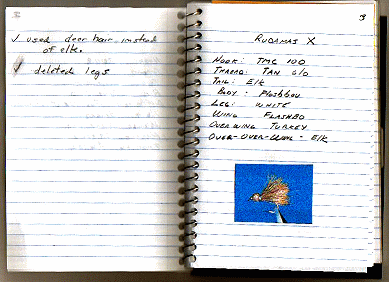 ✓ used deer hair instead
of elk.
✓ deleted legs
3
RUDAMAS X
HOOK: TMC 100
THREAD: TAN 6/0
TAIL: ELK
BODY - Flashbou
LEG: WHITE
WING FLASHBO
OVERWING TURKEY
OVER-OVER-WING - ELK